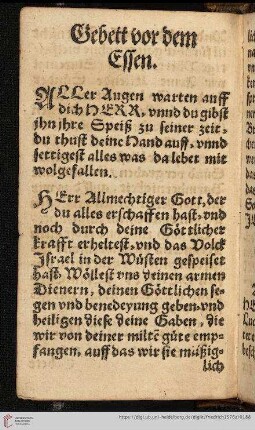 Gebett vor dem
Essen.
ALLer Augen warten auff
dich HERR, vnnd du gibst
jhn jhre Speiß zu seiner zeit,
du thust deine Hand auff, vnnd
settigest alles was da lebet mit
wolgefallen.
HErr Allmechtiger Gott, der
du alles erschaffen hast, vnd
noch durch deine Göttlicher
krafft erheltest, vnd das Volck
Israel in der Wüsten gespeiset
hast, Wöllest vns deinen armen
Dienern, deinen Göttlichen se-
gen vnd benedeyung geben, vnd
heiligen diese deine Gaben, die
wir von deiner milte güte emp-
fangen, auff das wir sie mässig-
lich